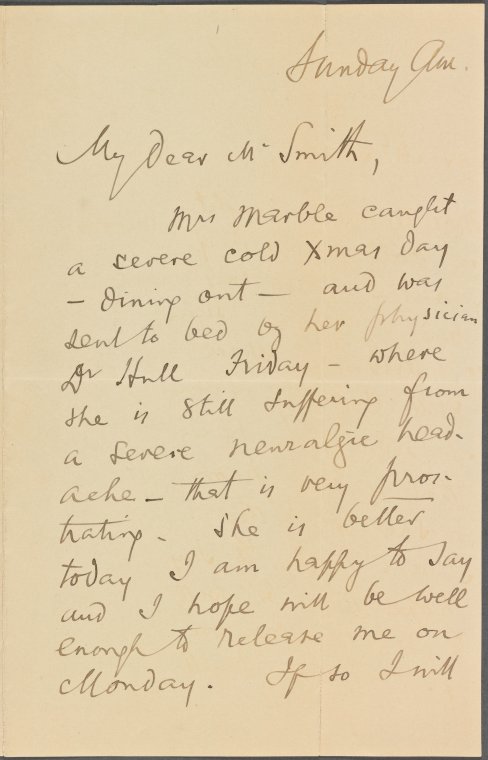 Sunday Am.
My Dear Mr Smith,
Mrs Marble caught
a severe cold Xmas Day
– dining out – and was
sent to bed by her physician
Dr Hull Friday – where
she is still suffering from
a severe neuralgic head-
ache – that is very pros-
trating. She is better
today I am happy to say
and I hope will be well
enough to release me on
Monday. If so I will